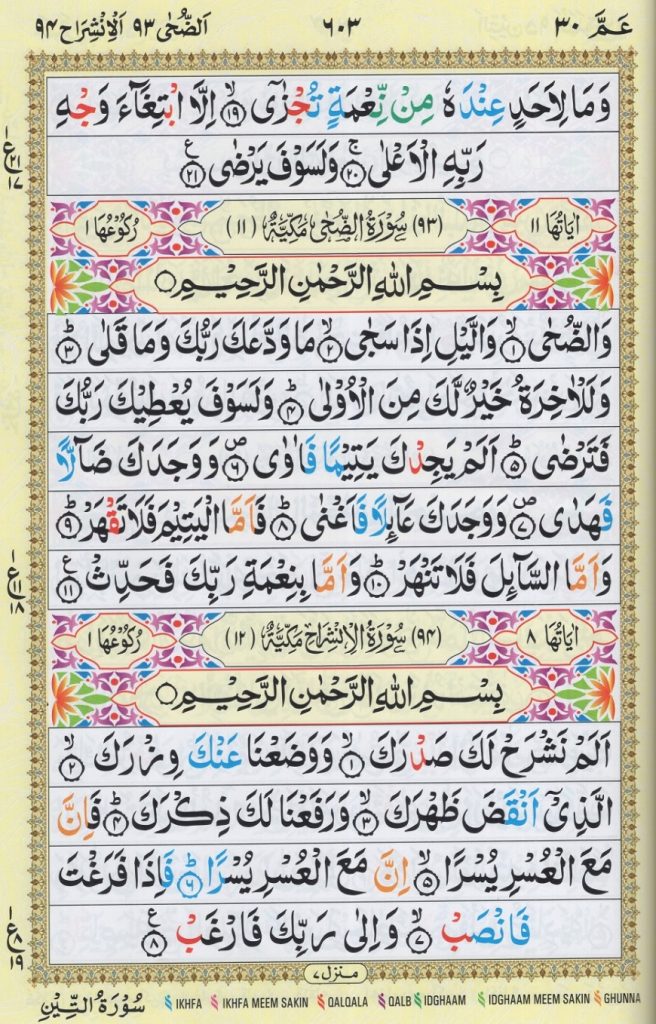 عَمَّ ٣٠
٦٠٣
اَلضُّحٰى ٩٣ اَلْاِنْشِرَاح ٩٤
وَمَا لِاَحَدٍ عِنْدَهٗ مِنْ نِّعْمَةٍ تُجْزٰٓى ۙ۝١٩ اِلَّا ابْتِغَآءَ وَجْهِ
رَبِّهِ الْاَعْلٰى ۚ۝٢٠ وَلَسَوْفَ يَرْضٰى ۝٢١ ع
ع ٢١ ١٧
اٰيَاتُهَا ١١ (٩٣) سُوْرَةُ الضُّحٰى مَكِّيَّةٌ (١١) رُكُوْعُهَا ١
بِسْمِ اللهِ الرَّحْمٰنِ الرَّحِيْمِ ۝
وَالضُّحٰى ۙ۝١ وَالَّيْلِ اِذَا سَجٰى ۙ۝٢ مَا وَدَّعَكَ رَبُّكَ وَمَا قَلٰى ؕ۝٣
وَلَلْاٰخِرَةُ خَيْرٌ لَّكَ مِنَ الْاُوْلٰى ؕ۝٤ وَلَسَوْفَ يُعْطِيْكَ رَبُّكَ
فَتَرْضٰى ؕ۝٥ اَلَمْ يَجِدْكَ يَتِيْمًا فَاٰوٰى ۪۝٦ وَوَجَدَكَ ضَآلًّا
فَهَدٰى ۪۝٧ وَوَجَدَكَ عَآئِلًا فَاَغْنٰى ؕ۝٨ فَاَمَّا الْيَتِيْمَ فَلَا تَقْهَرْ ؕ۝٩
وَاَمَّا السَّآئِلَ فَلَا تَنْهَرْ ؕ۝١٠ وَاَمَّا بِنِعْمَةِ رَبِّكَ فَحَدِّثْ ۝١١ ع
ع ١١ ١٨
اٰيَاتُهَا ٨ (٩٤) سُوْرَةُ الْاِنْشِرَاحِ مَكِّيَّةٌ (١٢) رُكُوْعُهَا ١
بِسْمِ اللهِ الرَّحْمٰنِ الرَّحِيْمِ ۝
اَلَمْ نَشْرَحْ لَكَ صَدْرَكَ ۙ۝١ وَوَضَعْنَا عَنْكَ وِزْرَكَ ۙ۝٢
الَّذِيْٓ اَنْقَضَ ظَهْرَكَ ۙ۝٣ وَرَفَعْنَا لَكَ ذِكْرَكَ ؕ۝٤ فَاِنَّ
مَعَ الْعُسْرِ يُسْرًا ۙ۝٥ اِنَّ مَعَ الْعُسْرِ يُسْرًا ؕ۝٦ فَاِذَا فَرَغْتَ
فَانْصَبْ ۙ۝٧ وَاِلٰى رَبِّكَ فَارْغَبْ ۝٨ ع
ع ٨ ١٩
منزل ٧
سُوْرَةُ التِّيْنِ
IKHFA IKHFA MEEM SAKIN QALQALA QALB IDGHAAM IDGHAAM MEEM SAKIN GHUNNA